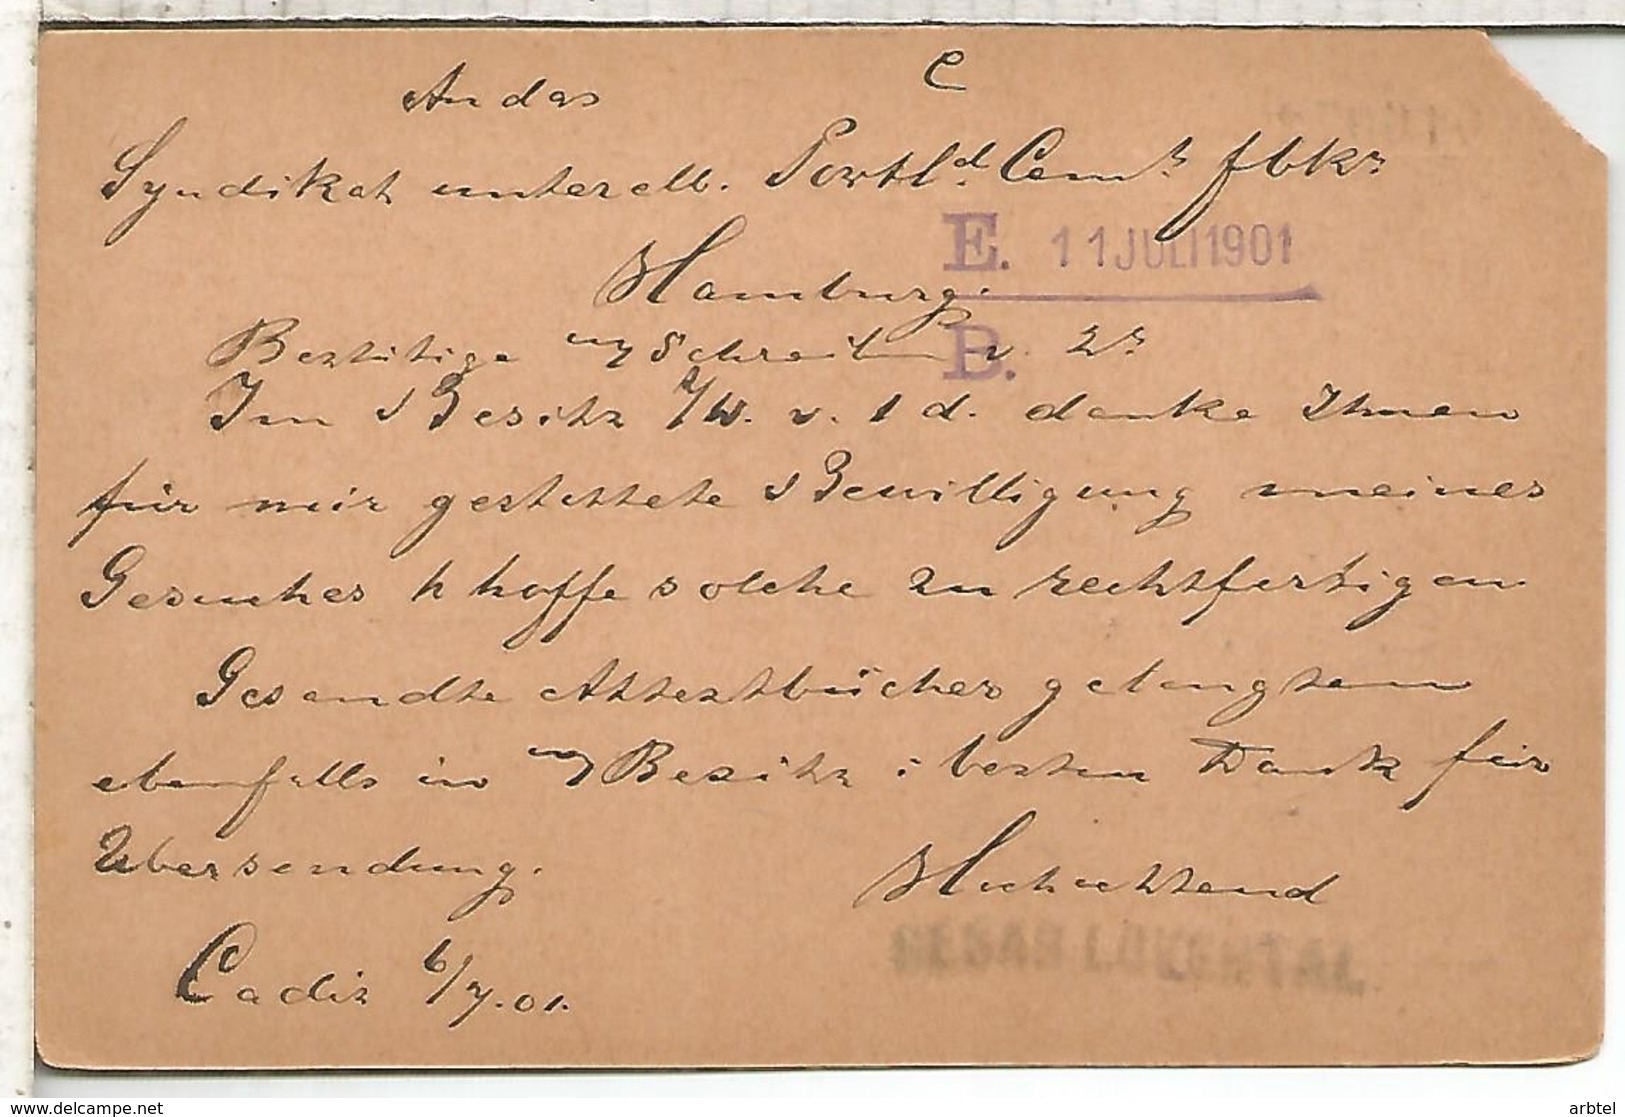 C
An das
Syndikat unterelb. Portld. Cemt. fbkn
Hamburg.
E. 11 JULI 1901
B.
Bestätige my Schreiben v. 2n
Im Besitz I/W. v. 1 d. danke Ihnen
für mir gestattete Bewilligung meines
Gesuches & hoffe solche zu rechtfertigen
Gesandte Attestbücher gelangten
ebenfalls in my Besitz : besten Dank für
Übersendung.
Hochachtend
CESAR LOVENTAL
Cadiz 6/7.01.
www.delcampe.net
arbtel